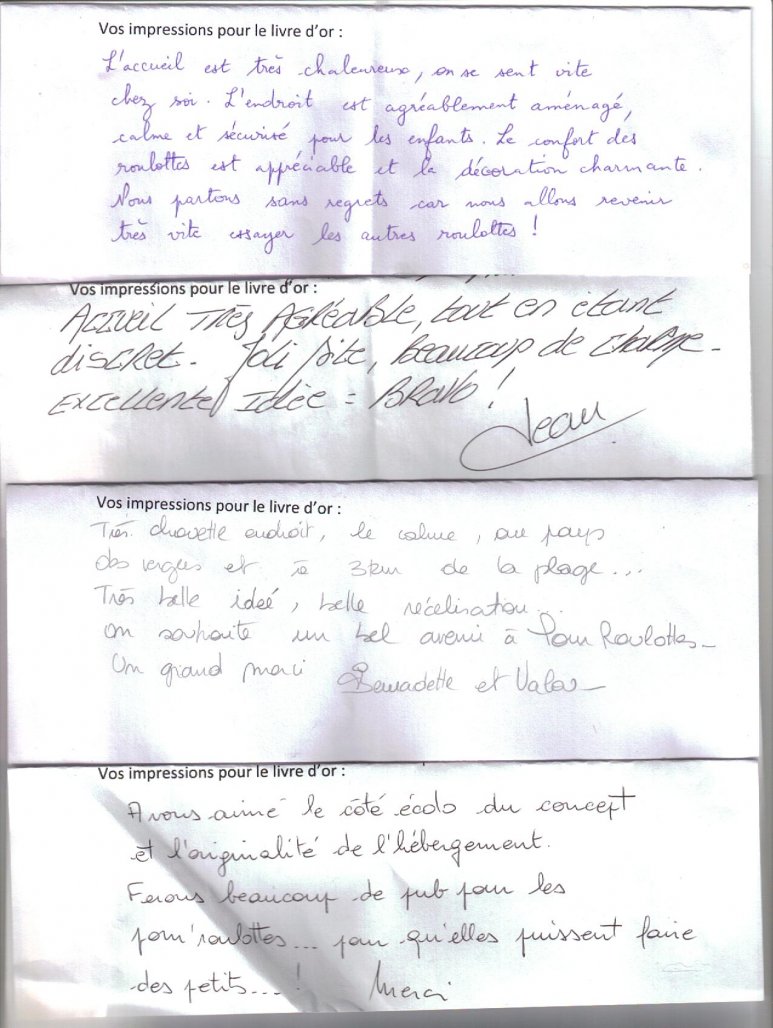 Vos impressions pour le livre d'or :
L'accueil est très chaleureux, on se sent vite
chez soi. L'endroit est agréablement aménagé,
calme et sécurisé pour les enfants. Le confort des
roulottes est appréciable et la décoration charmante.
Nous partons sans regrets car nous allons revenir
très vite essayer les autres roulottes !
Vos impressions pour le livre d'or :
Accueil Très Agréable, tout en étant
discret. Joli site, beaucoup de charme.
Excellente Idée = Bravo !
Jean
Vos impressions pour le livre d'or :
Très chouette endroit, le calme, au pays
des vergers et à 3km de la plage...
Très belle ideé, belle réalisation...
On souhaite un bel avenir à Pom Roulottes
Un grand merci Bernadette et
Vos impressions pour le livre d'or :
Avons aimé le côté écolo du concept
et l'originalité de l'hébergement.
Ferons beaucoup de pub pour les
pom'roulottes... pour qu'elles puissent faire
des petits...! Merci